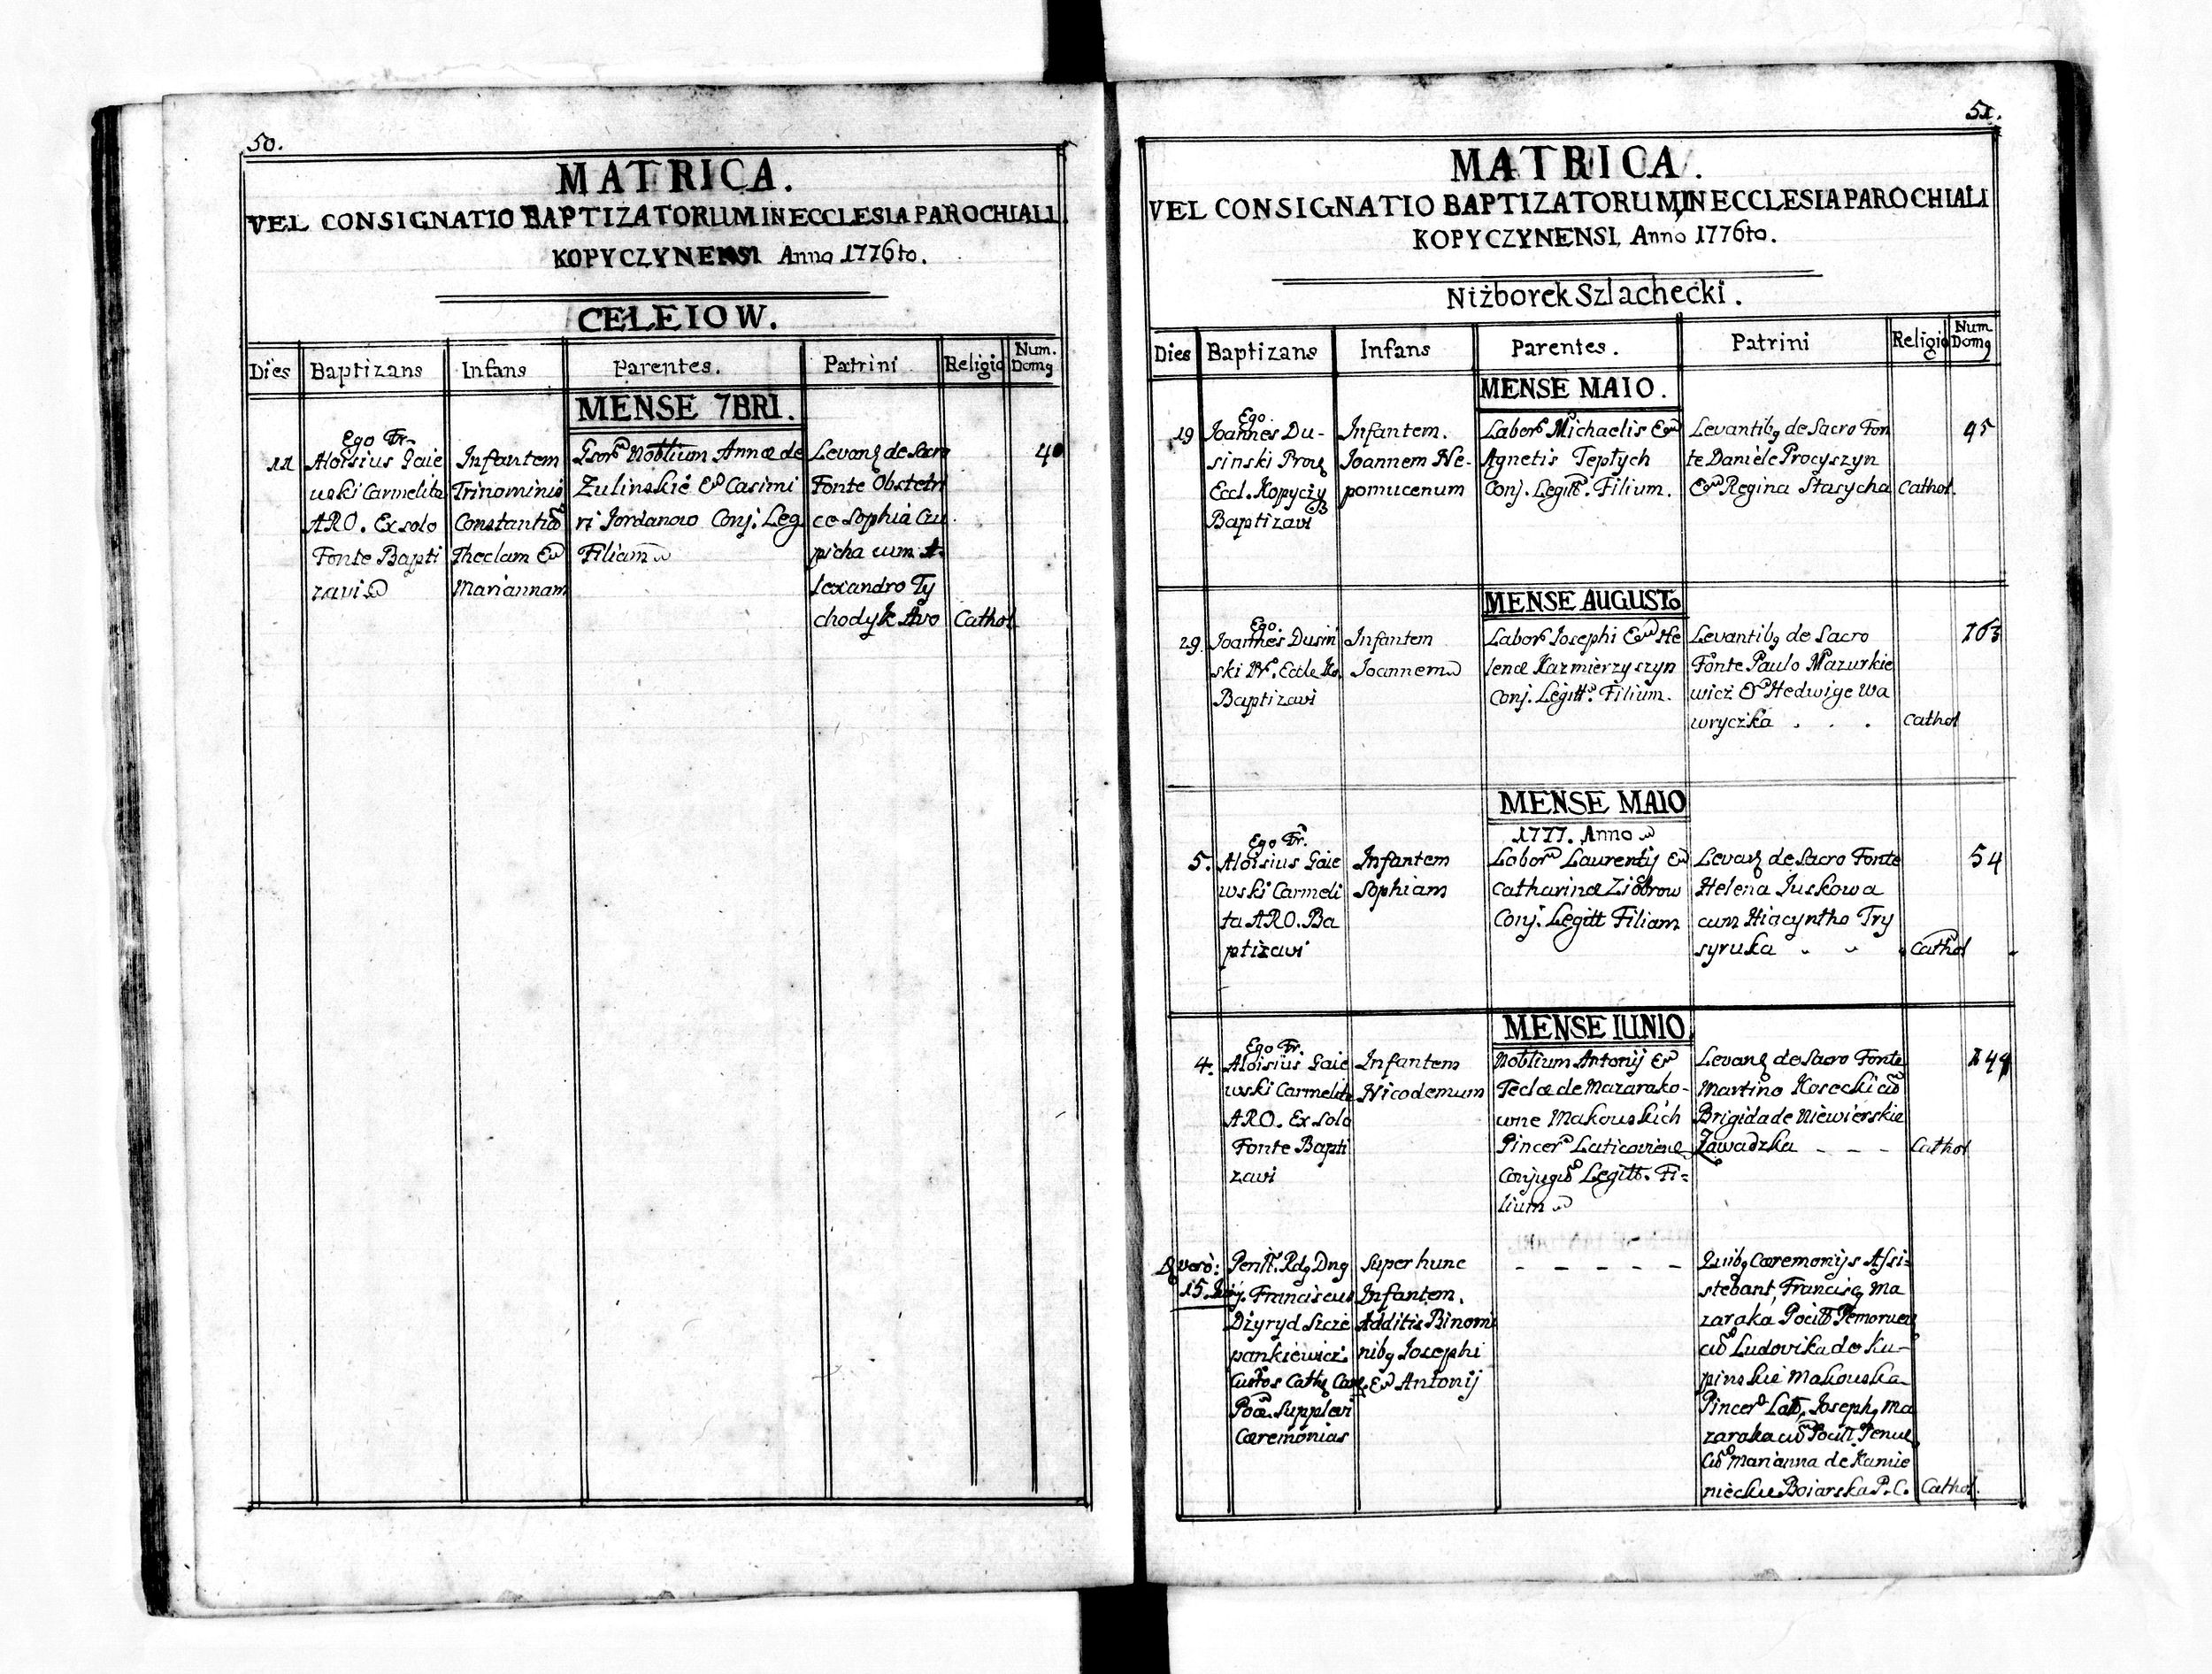 50.
MATRICA.
VEL CONSIGNATIO BAPTIZATORUM IN ECCLESIA PAROCHIALI
KOPYCZYNENSI Anno 1776to.
CELEIOW.
Dies Baptizans Infans Parentes. Patrini Religio Num. Dom9
MENSE 7BRI.
11
Ego Fr.
Aloisius Gaie
wski Carmelita
ARO. Ex solo
Fonte Bapti
zavi
Infantem
Trinominis
Constantiã
Theclam &
Mariannam
Gsor Nobilium Annæ de
Zulinskie & Casimi
ri Jordanow Conj. Leg
Filiam
Levan de Sacro
Fonte Obstetri
ce Sophia Cru
picha cum A-
lexandro Ty
chodyk Avo
Cathol.
40
51.
MATRICA.
VEL CONSIGNATIO BAPTIZATORUM IN ECCLESIA PAROCHIALI
KOPYCZYNENSI, Anno 1776to.
Niżborek Szlachecki.
Dies Baptizans Infans Parentes. Patrini Religio Num Dom9
MENSE MAIO.
19
Ego
Joannes Du-
sinski
Eccl. Kopyczy
Baptizavi
Infantem.
Joannem Ne-
pomucenum
Labor Michaelis &
Agnetis Teptych
Conj. Legitt. Filium.
Levantib9 de Sacro Fon
te Daniele Procyszyn
& Regina Stasycha
Cathol.
95
MENSE AUGUSTo
29.
Ego
Joannes Dusin
ski Eccle Ko.
Baptizavi
Infantem
Joannem
Labor Josephi & He
lenæ Kazmierzyszyn
Conj. Legitt. Filium.
Levantib9 de Sacro
Fonte Paulo Mazurkie
wicz & Hedwige Wa
wryczka . . .
Cathol
163
MENSE MAIO
1777. Anno
5.
Ego Fr.
Aloisius Gaie
wski Carmeli
ta ARO. Ba
ptizavi
Infantem
Sophiam
Labor Laurentij &
Catharinæ Ziobrow
Conj. Legitt Filiam
Levan de Sacro Fonte
Helena Juskowa
cum Hiacyntho Try
syruka
Cathol
54
MENSE IUNIO
4.
Ego Fr.
Aloisius Gaie
wski Carmelita
ARO. Ex solo
Fonte Bapti
zavi
Infantem
Nicodemum
Nobilium Antonij &
Teclæ de Mazarako-
wne Makowskich
Pincer
Conjugũ Legitt. Fi-
lium
Levan de Sacro Fonte
Martino Kosecki cũ
Brigida de Niewierskie
Zawadzka - - -
Cathol
144
vero:
15.
Franciscus
Dzyryd Szcze
pankiewicz
Custos
Supplevi
Cæremonias
Super hunc
Infantem.
Additis Binomi
nib9 Josephi
& Antonij
- - - - -
Quib9 Cæremonijs Assi-
stebant, Francisc9 Ma
zaraka
cũ Ludovika de Ku-
pinskie Makowska
Pincer Joseph9 Ma
zaraka cũ
cũ Marianna de Kamie
nieckie Boiarska P.C.
Cathol.